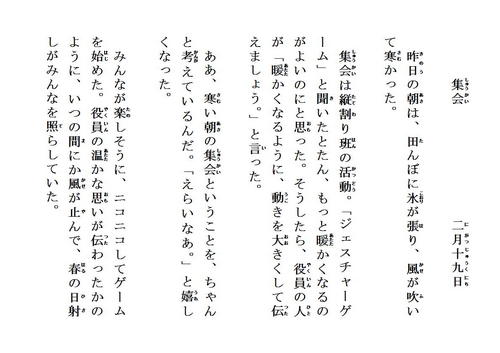 集会　　　　　二月十九日
昨日の朝は、田んぼに氷が張り、風が吹い
て寒かった。
集会は縦割り班の活動。「ジェスチャーゲ
ーム」と聞いたとたん、もっと暖かくなるの
がよいのにと思った。そうしたら、役員の人
が「暖かくなるように、動きを大きくして伝
えましょう。」と言った。
ああ、寒い朝の集会ということを、ちゃん
と考えているんだ。「えらいなあ。」と嬉し
くなった。
みんなが楽しそうに、ニコニコしてゲーム
を始めた。役員の温かな思いが伝わったかの
ように、いつの間にか風が止んで、春の日射
しがみんなを照らしていた。